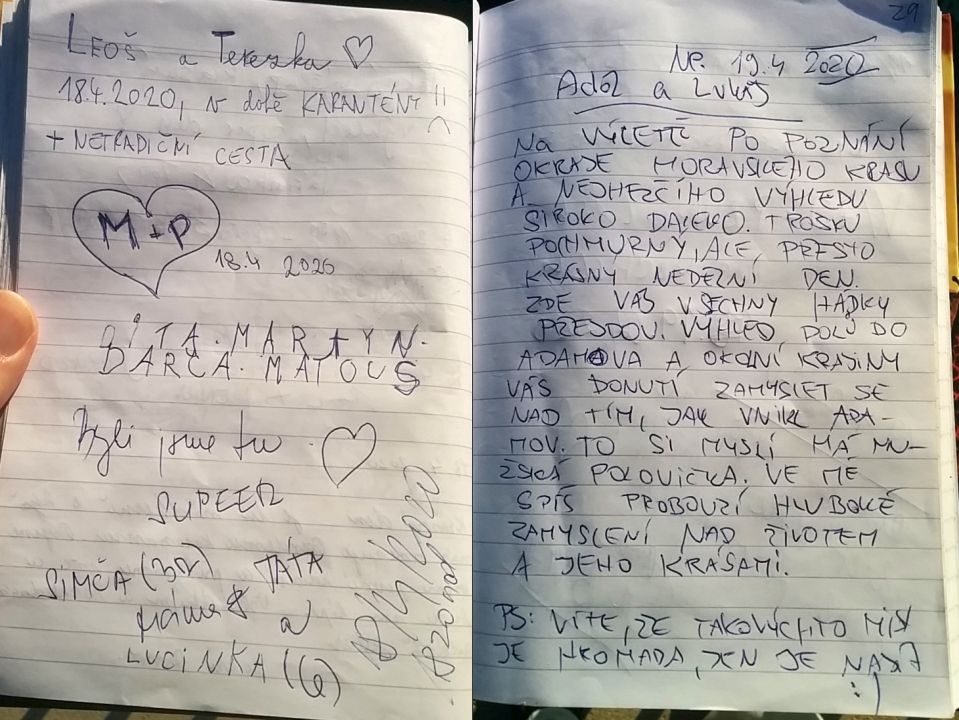 LEOŠ a Terezka ♡
18.4.2020, v době KARANTÉNY !!
+ NETRADIČNÍ CESTA
M + P
18.4 2020
DÁRČA. MATOUŠ
Byli jsme tu. ♡
SUPEER
SIMČA (30) TÁTA
a
LUCINKA (6)
18/4/2020
29
NE. 19.4 2020
Adél a Lukáš
NA VÝLETĚ PO POZNÁNÍ
OKRAJE MORAVSKÉHO KRASU
A NEJHEZČÍHO VÝHLEDU
ŠIROKO DALEKO. TROŠKU
POCHMURNÝ, ALE PŘESTO
KRÁSNÝ NEDĚLNÍ DEN.
ZDE VÁS VŠECHNY HÁDKY
PŘEJDOU. VÝHLED DOLŮ DO
ADAMOVA A OKOLNÍ KRAJINY
VÁS DONUTÍ ZAMYSLET SE
NAD TÍM, JAK VNIKL ADA-
MOV. TO SI MYSLÍ MÁ MU-
ŽSKÁ POLOVIČKA. VE MĚ
SPÍŠ PROBOUZÍ HLUBOKÉ
ZAMYSLENÍ NAD ŽIVOTEM
A JEHO KRÁSAMI.
PS: VÍTE, ŽE TAKOVÝCHTO MÍST
JE HROMADA, JEN JE NAJÍT
:)